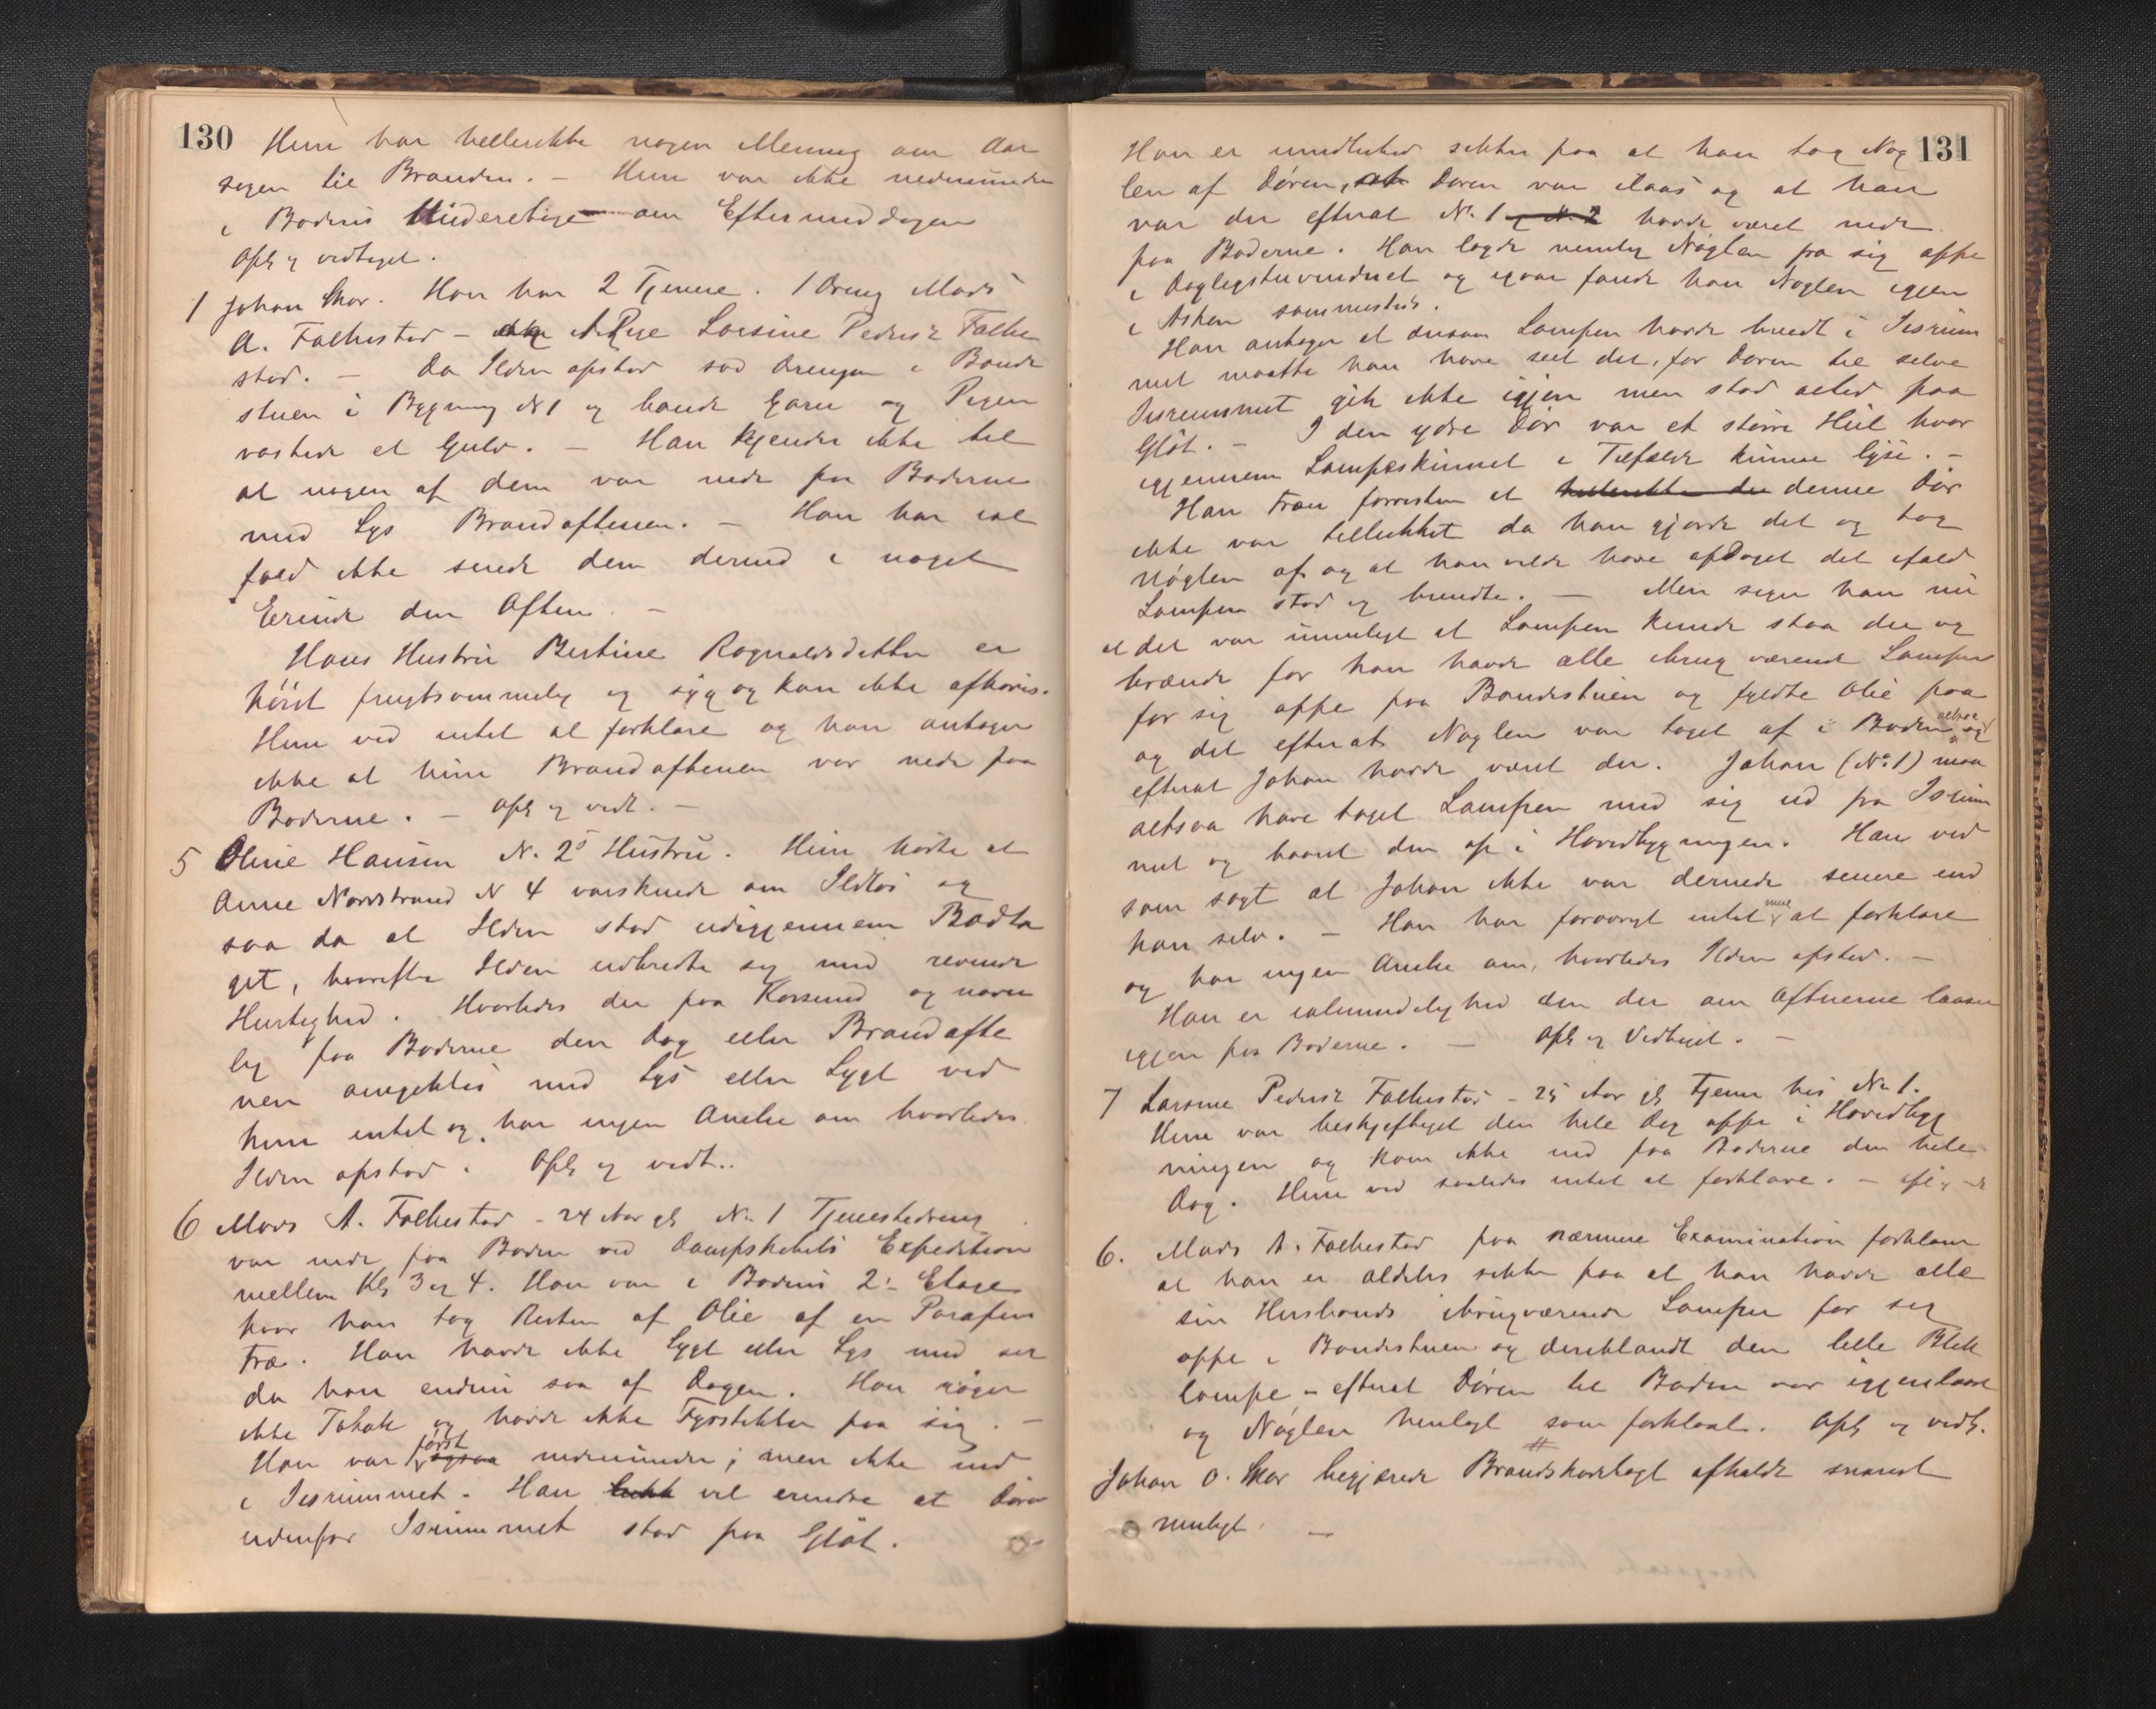 130
Hun har hellerikke nogen Mening om Aar
sagen til Branden. - Hun var ikke nedenunder
i Bodens Underetage om Eftermiddagen
Opl. og vedtaget.
1 Johan Skor. Han har 2 Tjenere. 1 Dreng Mads
A. Falkestad - 1 Pige Larsine Pedersd Falke
stad. - Da Ilden opstod sad Drengen i Bonde
stuen i Bygning N 1 og bandt Garn og Pigen
vaskede et Gulv. - Han kjender ikke til
at nogen af dem var nede paa Boderne
med Lys Brandaftenen. - Han har ial
fald ikke sendt dem derned i noget
Erinde den Aften. -
Hans Hustru Bertine Ragnvaldsdatter er
høist frugtsommelig og syg og kan ikke afhøres.
Hun ved intet at forklare og han antager
ikke at hun Brandaftenen var nede paa
Boderne. - Opl. og vedt. -
5 Oline Hansen N. 2s Hustru. Hun hørte at
Anne Nordstrand N 4 varskuede om Ildløs og
saa da at Ilden stod udigjennem Bodta
get, hvorefter Ilden udbredte sig med rivende
Hurtighed. Hvorledes der paa Korsund og navn
lig paa Boderne den Dag eller Brandafte
nen omgikkes med Lys eller Lygt ved
hun intet og har ingen Anelse om hvorledes
Ilden opstod. Opl. og vedt..
6 Mads A. Falkestad - 24 Aar gl N. 1 Tjenestedreng
var nede paa Boden ved Dampskibets Expedition
mellem Kl. 3 og 4. Han var i Bodens 2. Etage
hvor han tog Resten af Olie af en Parafin
Træ. Han havde ikke Lygt eller Lys med sig
da han endnu saa af Dagen. Han røger
ikke Tobak og havde ikke Fyrstikker paa sig. -
Han var først nedenunder; men ikke ind
i Isrummet. Han vil erindre at Døren
udenfor Isrummet stod paa Gløt.
131
Han er imidlertid sikker paa at han tog Nøg
len af Døren, at Døren var ilaas og at han
var der efterat N. 1 og N. 2 havde været nede
paa Boderne. Han lagde nemlig Nøglen fra sig oppe
i Dagligstuvinduet og igaar fandt han Nøglen igjen
i Asken sammesteds.
Han antager at dersom Lampen havde brændt i Isrum
met maatte han have seet det, for Døren til selve
Isrummet gik ikke igjen men stod altid paa
Gløt. - I den ydre Dør var et større Hul hvor
igjennem Lampeskinnet i Tilfælde kunne lyse. -
Han tror forresten at denne Dør
ikke var tillukket da han gjorde det og tog
Nøglen af og at han vilde have opdaget det ifald
Lampen stod og brændte. - Men siger han nu
at det var umuligt at Lampen kunde staa der og
brænde for han havde alle ibrug værende Lamper
for sig oppe paa Bondestuen og fyldte Olie paa
og det efterat Nøglen var taget af i Boden altsaa og
efterat Johan havde været der. Johan (No. 1) maa
altsaa have taget Lampen med sig ud fra Isrum
met og baaret den op i Hovedbygningen. Han ved
som sagt at Johan ikke var dernede senere end
han selv. - Han har forøvrigt intet mere at forklare
og har ingen Anelse om, hvorledes Ilden opstod. -
Han er ialmindelighed den der om Aftenerne laaser
igjen paa Boderne. - Opl. og Vedtaget. -
7 Larsine Pedersd Falkestad - 25 Aar gl Tjener hos No 1.
Hun var beskjeftiget den hele Dag oppe i Hovedbyg
ningen og kom ikke ned paa Boderne den hele
Dag. Hun ved saaledes intet at forklare. -
6. Mads A. Falkestad paa nærmere Examination forklarer
at han er aldeles sikker paa at han havde alle
sin Husbonds ibrugværende Lamper for sig
oppe i Bondestuen og deriblandt den lille Blik
lampe - efterat Døren til Boden var igjenlaast
og Nøglen henlagt som forklaret. Opl. og vedt.
Johan O. Skor begjærede Brandskadetaxt afholdt snarest
muligt. -